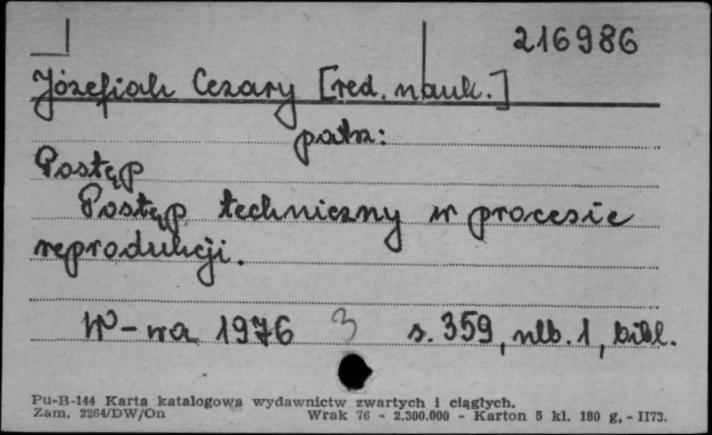 216986
Józefiak Cezary [red. nauk.]
patrz:
Postęp
Postęp techniczny w procesie
reprodukcji.
W-wa 1976 3 s. 359, nlb. 1, bibl.
Pu-B-144 Karta katalogowa wydawnictw zwartych i ciągłych.
Zam. 2264/DW/On Wrak 76 - 2.300.000 - Karton 5 kl. 180 g, - II73.